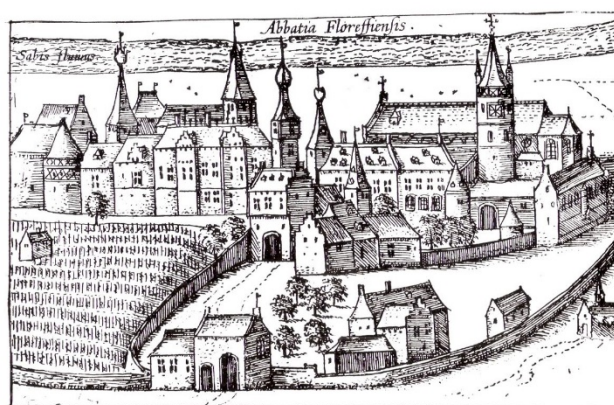 Abbatia Floreffiensis.
Sabis fluuius.